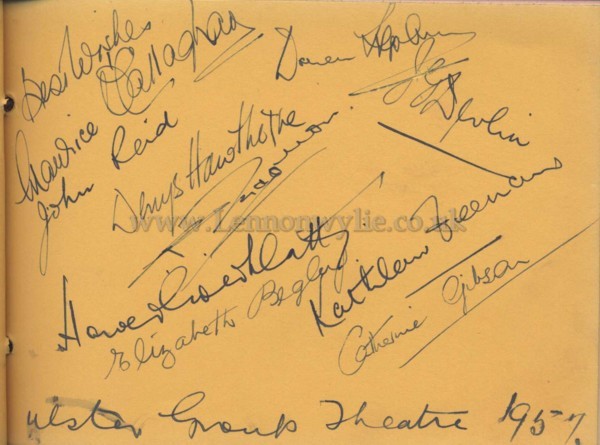 Best Wishes
Maurice O'Callaghan
John Reid
Doreen Hepburn
J. G. Devlin
Denys Hawthorne
Harold Goldblatt
Elizabeth Begley
Kathleen Feenan
Catherine Gibson
www.Lennonwylie.co.uk
Ulster Group Theatre 1957.